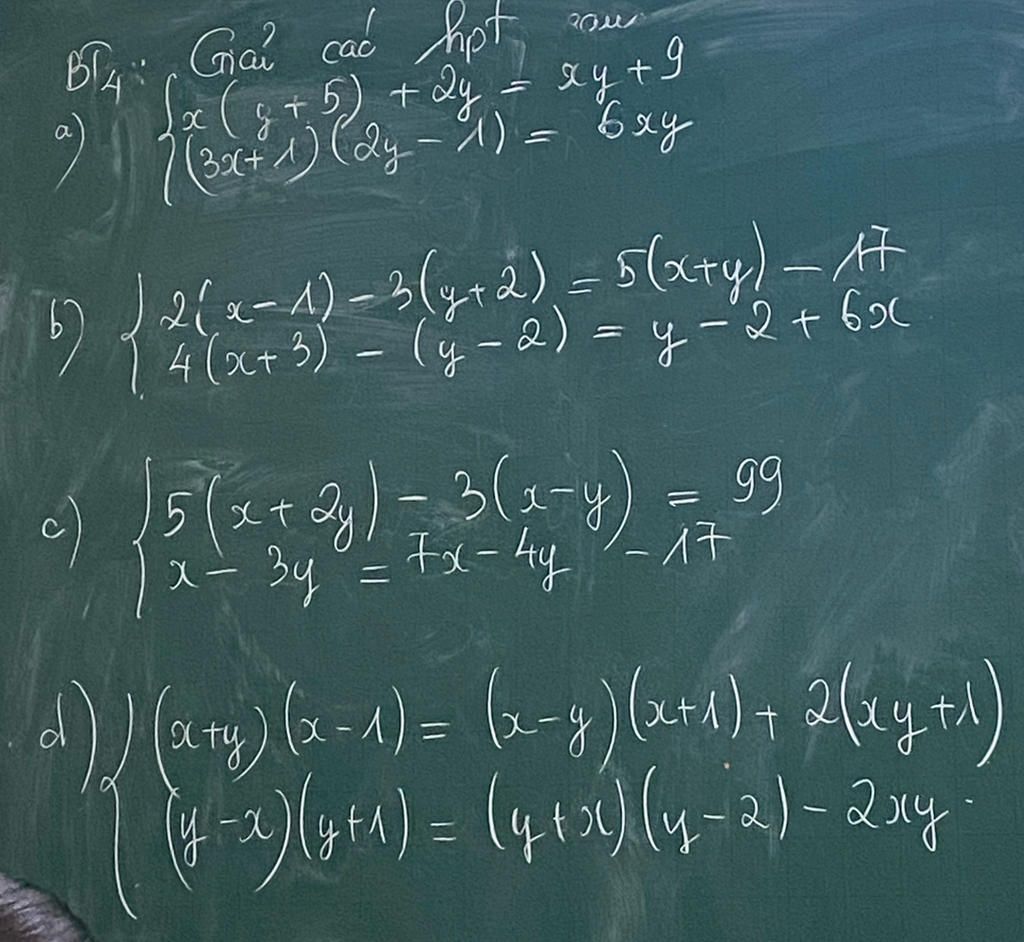 BT4: Giải các hpt sau
a) { x(y+5) + 2y = xy + 9
(3x+1)(2y-1) = 6xy
b) { 2(x-1) - 3(y+2) = 5(x+y) - 17
4(x+3) - (y-2) = y - 2 + 6x
c) { 5(x+2y) - 3(x-y) = 99
x - 3y = 7x - 4y - 17
d) { (x+y)(x-1) = (x-y)(x+1) + 2(xy+1)
(y-x)(y+1) = (y+x)(y-2) - 2xy.